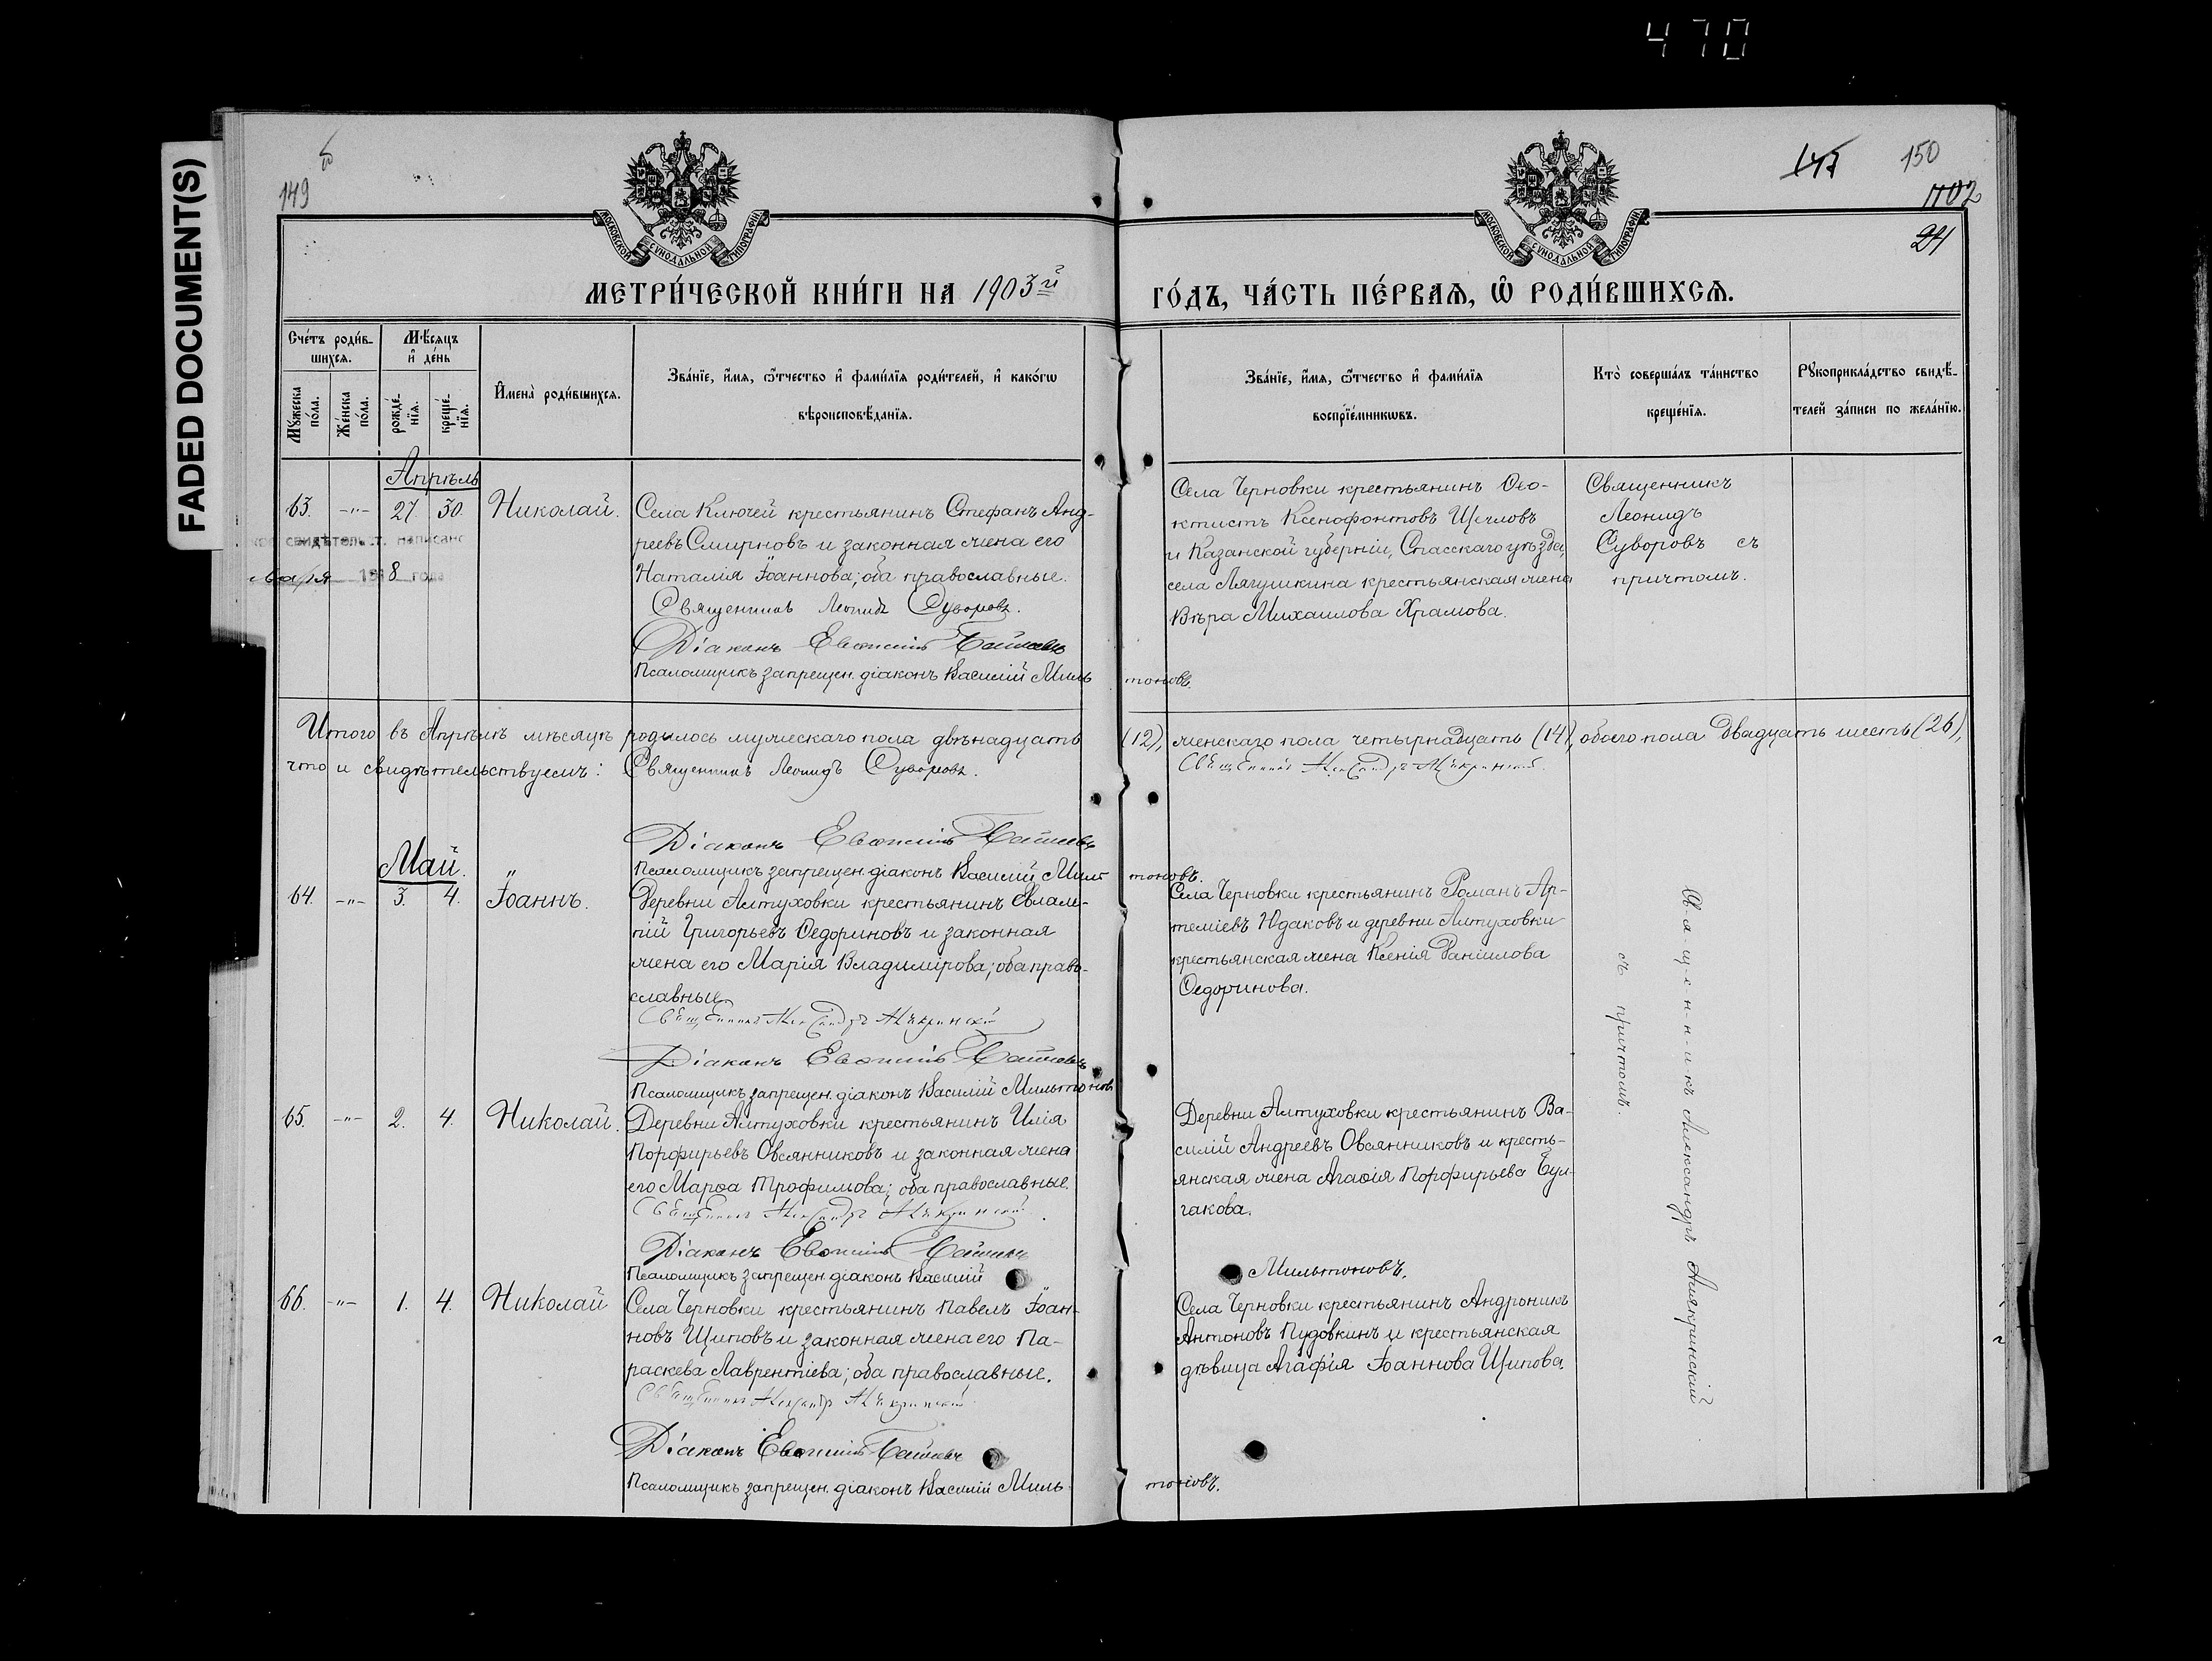 470
FADED DOCUMENT(S)
149
147 150
1702
24
МОСКОВСКОЙ СѴНОДАЛЬНОЙ ТИПОГРАФІИ
МОСКОВСКОЙ СѴНОДАЛЬНОЙ ТИПОГРАФІИ
МЕТРИ́ЧЕСКОЙ КНИ́ГИ НА 1903й
ГО́ДЪ, ЧА́СТЬ ПЕ́РВАѦ, Ѡ҆ РОДИ́ВШИХСѦ.
Сче́тъ роди́в-
шихсѧ.
Мꙋ́жеска по́ла.
Же́нска по́ла.
Мѣ́сѧцъ
и҆ де́нь
рожде́-
нїѧ.
креще́-
нїѧ.
И҆мена̀ роди́вшихсѧ.
Зва́нїе, и҆́мѧ, ѻ҆́тчество и҆ фами́лїѧ роди́телей, и҆ како́гѡ
вѣроисповѣ́данїѧ.
Зва́нїе, и҆́мѧ, ѻ҆́тчество и҆ фами́лїѧ
воспрїе́мникѡвъ.
Кто̀ соверша́лъ та́инство
креще́нїѧ.
Рꙋкоприкла́дство свидѣ́-
телей за́писи по жела́нїю.
Апрѣль
63. -"- 27. 30. Николай.
свидѣтельст. написано
1918 года
Села Ключей крестьянинъ Стефанъ Анд-
реевъ Смирновъ и законная жена его
Наталія Іоаннова; оба православные.
Священникъ Леонидъ Суворовъ.
Діаконъ
Псаломщикъ запрещен. діаконъ Василій Миль
тоновъ.
Села Черновки крестьянинъ Ѳео-
ктистъ Ксенофонтовъ Щегловъ
и Казанской губерніи, Спасскаго уѣзда,
села Лягушкина крестьянская жена
Вѣра Михаилова Храмова.
Священникъ
Леонидъ
Суворовъ съ
причтомъ.
Итого въ Апрѣлѣ мѣсяцѣ родилось мужескаго пола двѣнадцать (12), женскаго пола четырнадцать (14), обоего пола двадцать шесть (26),
что и свидѣтельствуемъ: Священникъ Леонидъ Суворовъ.
Священникъ Александръ Аллякринскій
Діаконъ
Псаломщикъ запрещен. діаконъ Василій Миль
тоновъ.
Май.
64. -"- 3. 4. Іоаннъ.
Деревни Алтуховки крестьянинъ Евлам-
пій Григорьевъ Ѳедориновъ и законная
жена его Марія Владимірова; оба право-
славные.
Священникъ Александръ Аллякринскій
Діаконъ
Псаломщикъ запрещен. діаконъ Василій Мильтоновъ
Села Черновки крестьянинъ Романъ Ар-
теміевъ Юдаковъ и деревни Алтуховки
крестьянская жена Ксенія Даніилова
Ѳедоринова.
С-в-я-щ-е-н-н-и-к-ъ Александръ Аллякринскій
съ причтомъ.
65. -"- 2. 4. Николай.
Деревни Алтуховки крестьянинъ Илія
Порфирьевъ Овсянниковъ и законная жена
его Марѳа Трофимова; оба православные.
Священникъ Александръ Аллякринскій
Діаконъ
Псаломщикъ запрещен. діаконъ Василій
Мильтоновъ.
Деревни Алтуховки крестьянинъ Ва-
силій Андреевъ Овсянниковъ и кресть-
янская жена Агаѳія Порфирьева Бул-
гакова.
66. -"- 1. 4. Николай
Села Черновки крестьянинъ Павелъ Іоан-
новъ Щиповъ и законная жена его Па-
раскева Лаврентіева; оба православные.
Священникъ Александръ Аллякринскій
Діаконъ
Псаломщикъ запрещен. діаконъ Василій Миль
тоновъ.
Села Черновки крестьянинъ Андроникъ
Антоновъ Пудовкинъ и крестьянская
дѣвица Агафія Іоаннова Щипова.